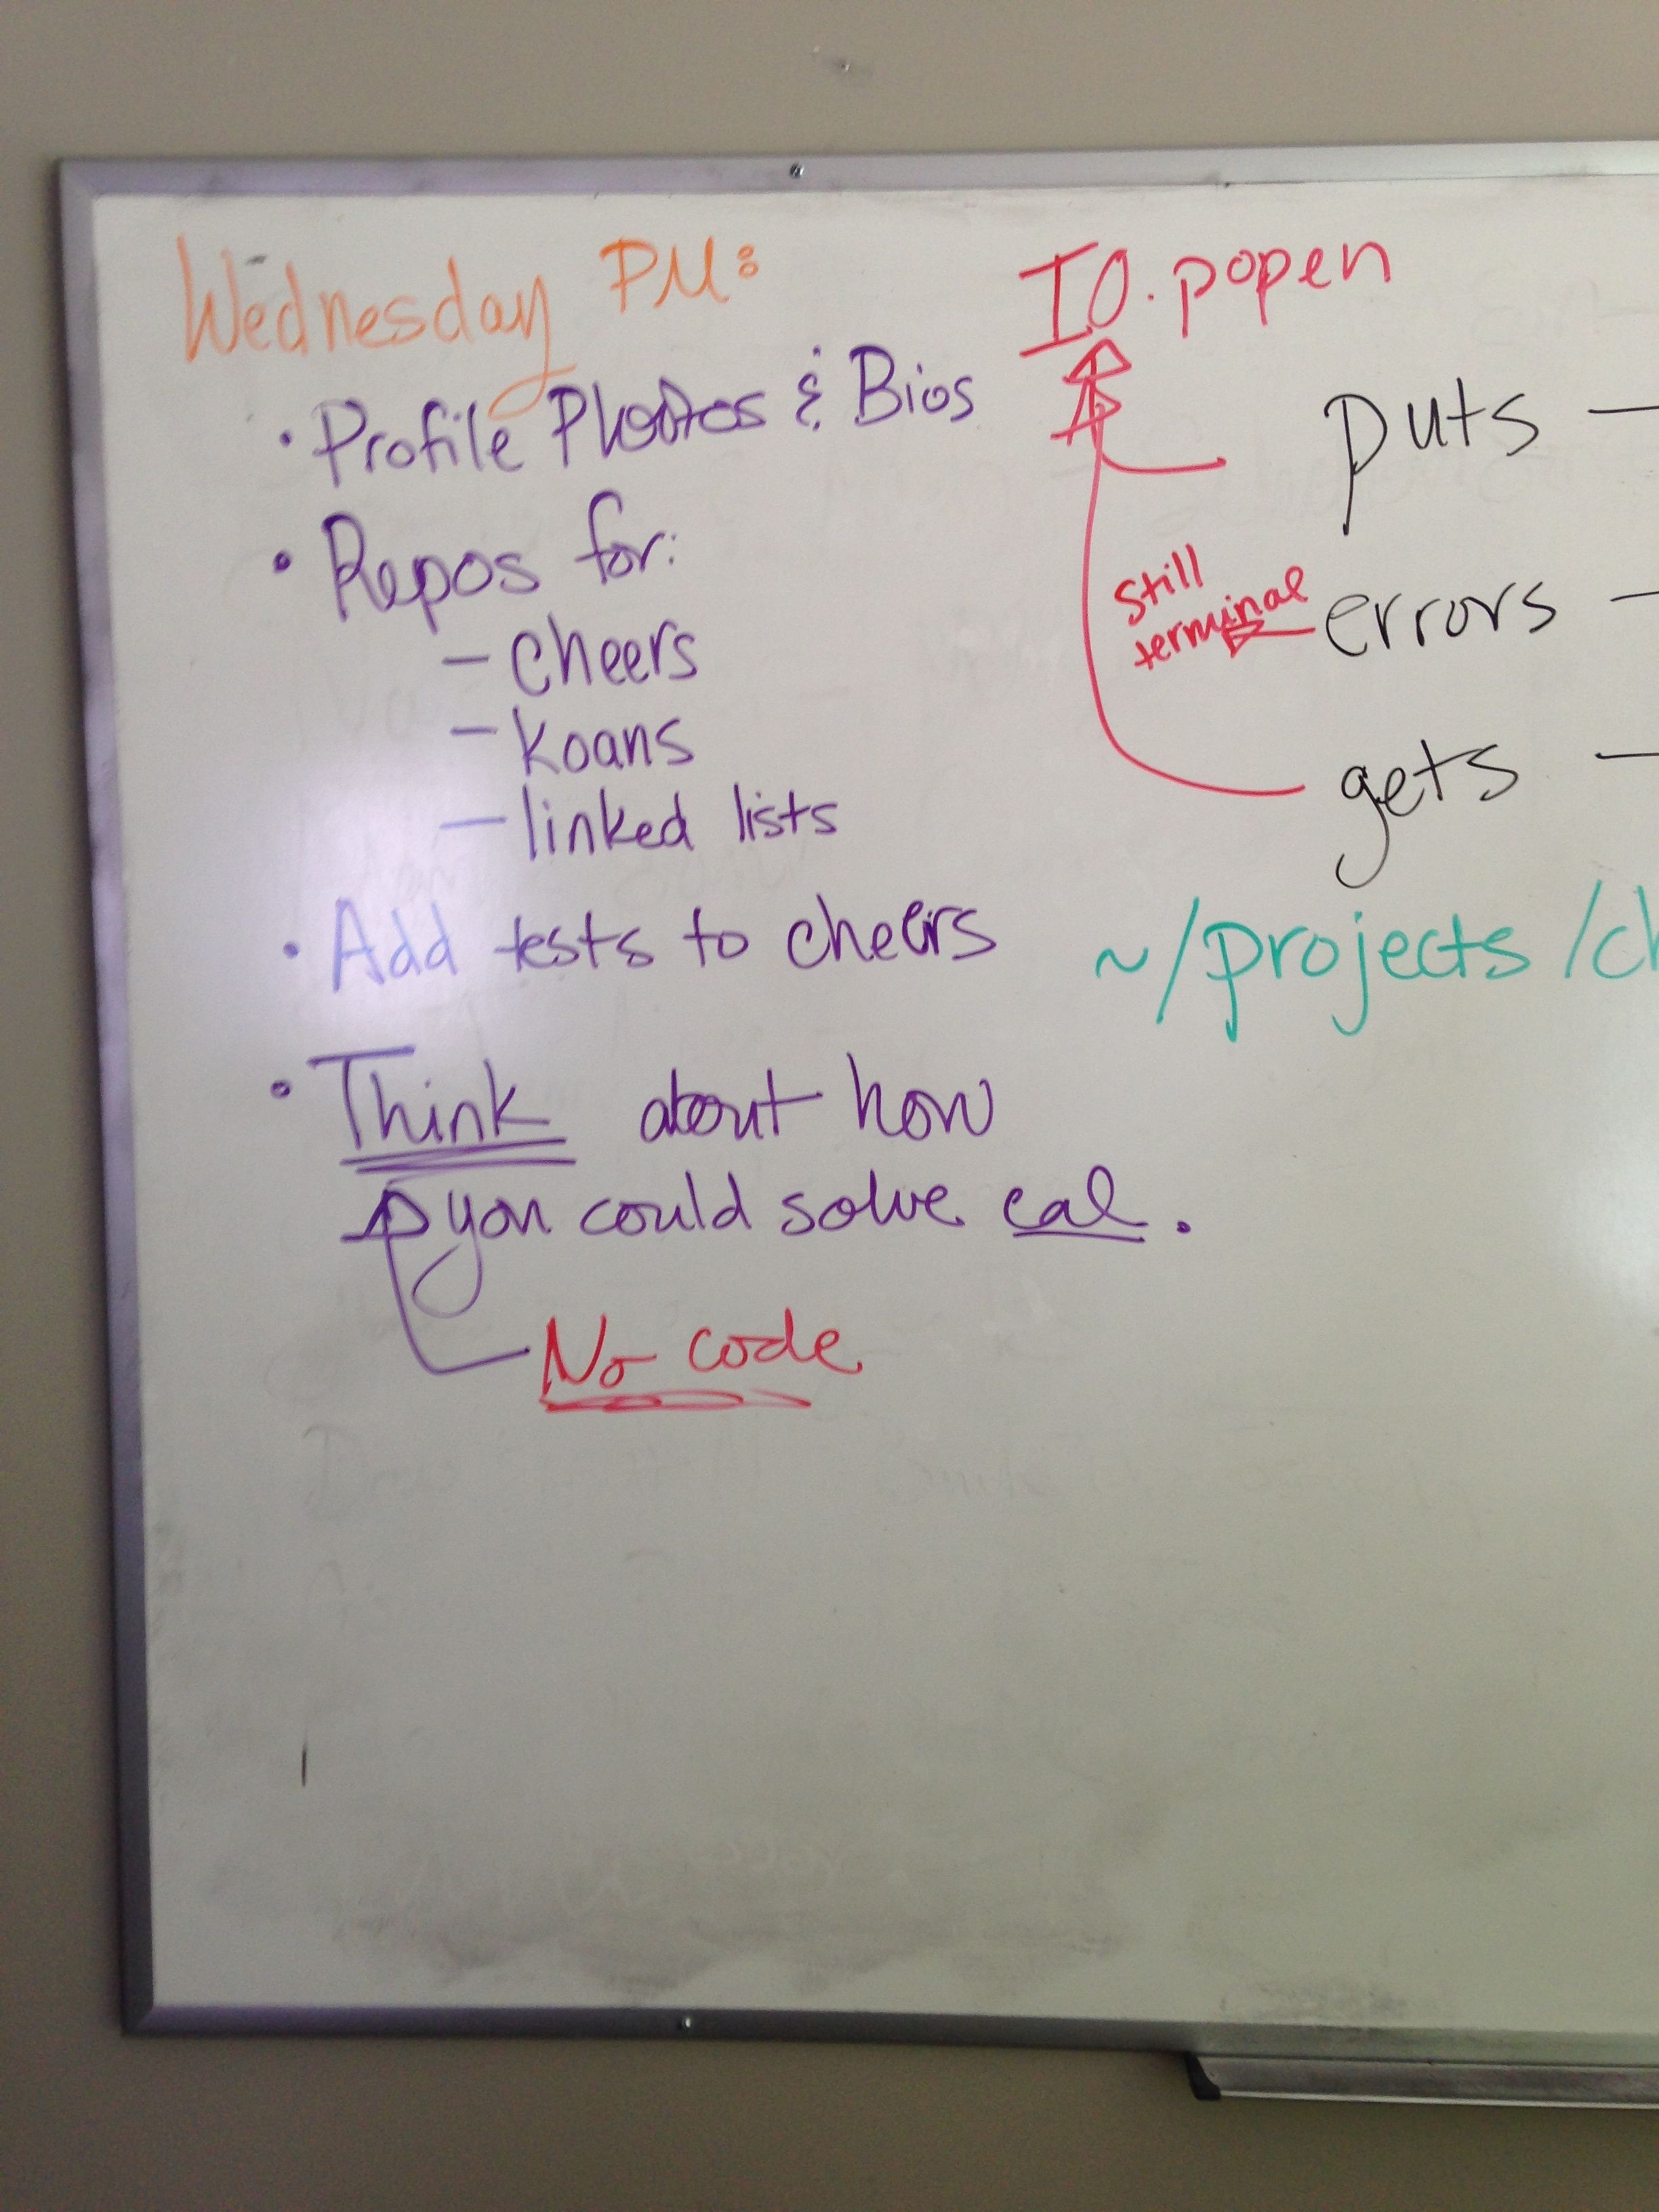 Wednesday PM:
• Profile Photos & Bios
• Repos for:
– cheers
– koans
– linked lists
• Add tests to cheers
• Think about how
you could solve cal.
No code
IO.popen
puts —
still
terminal
errors —
gets —
~/projects/ch